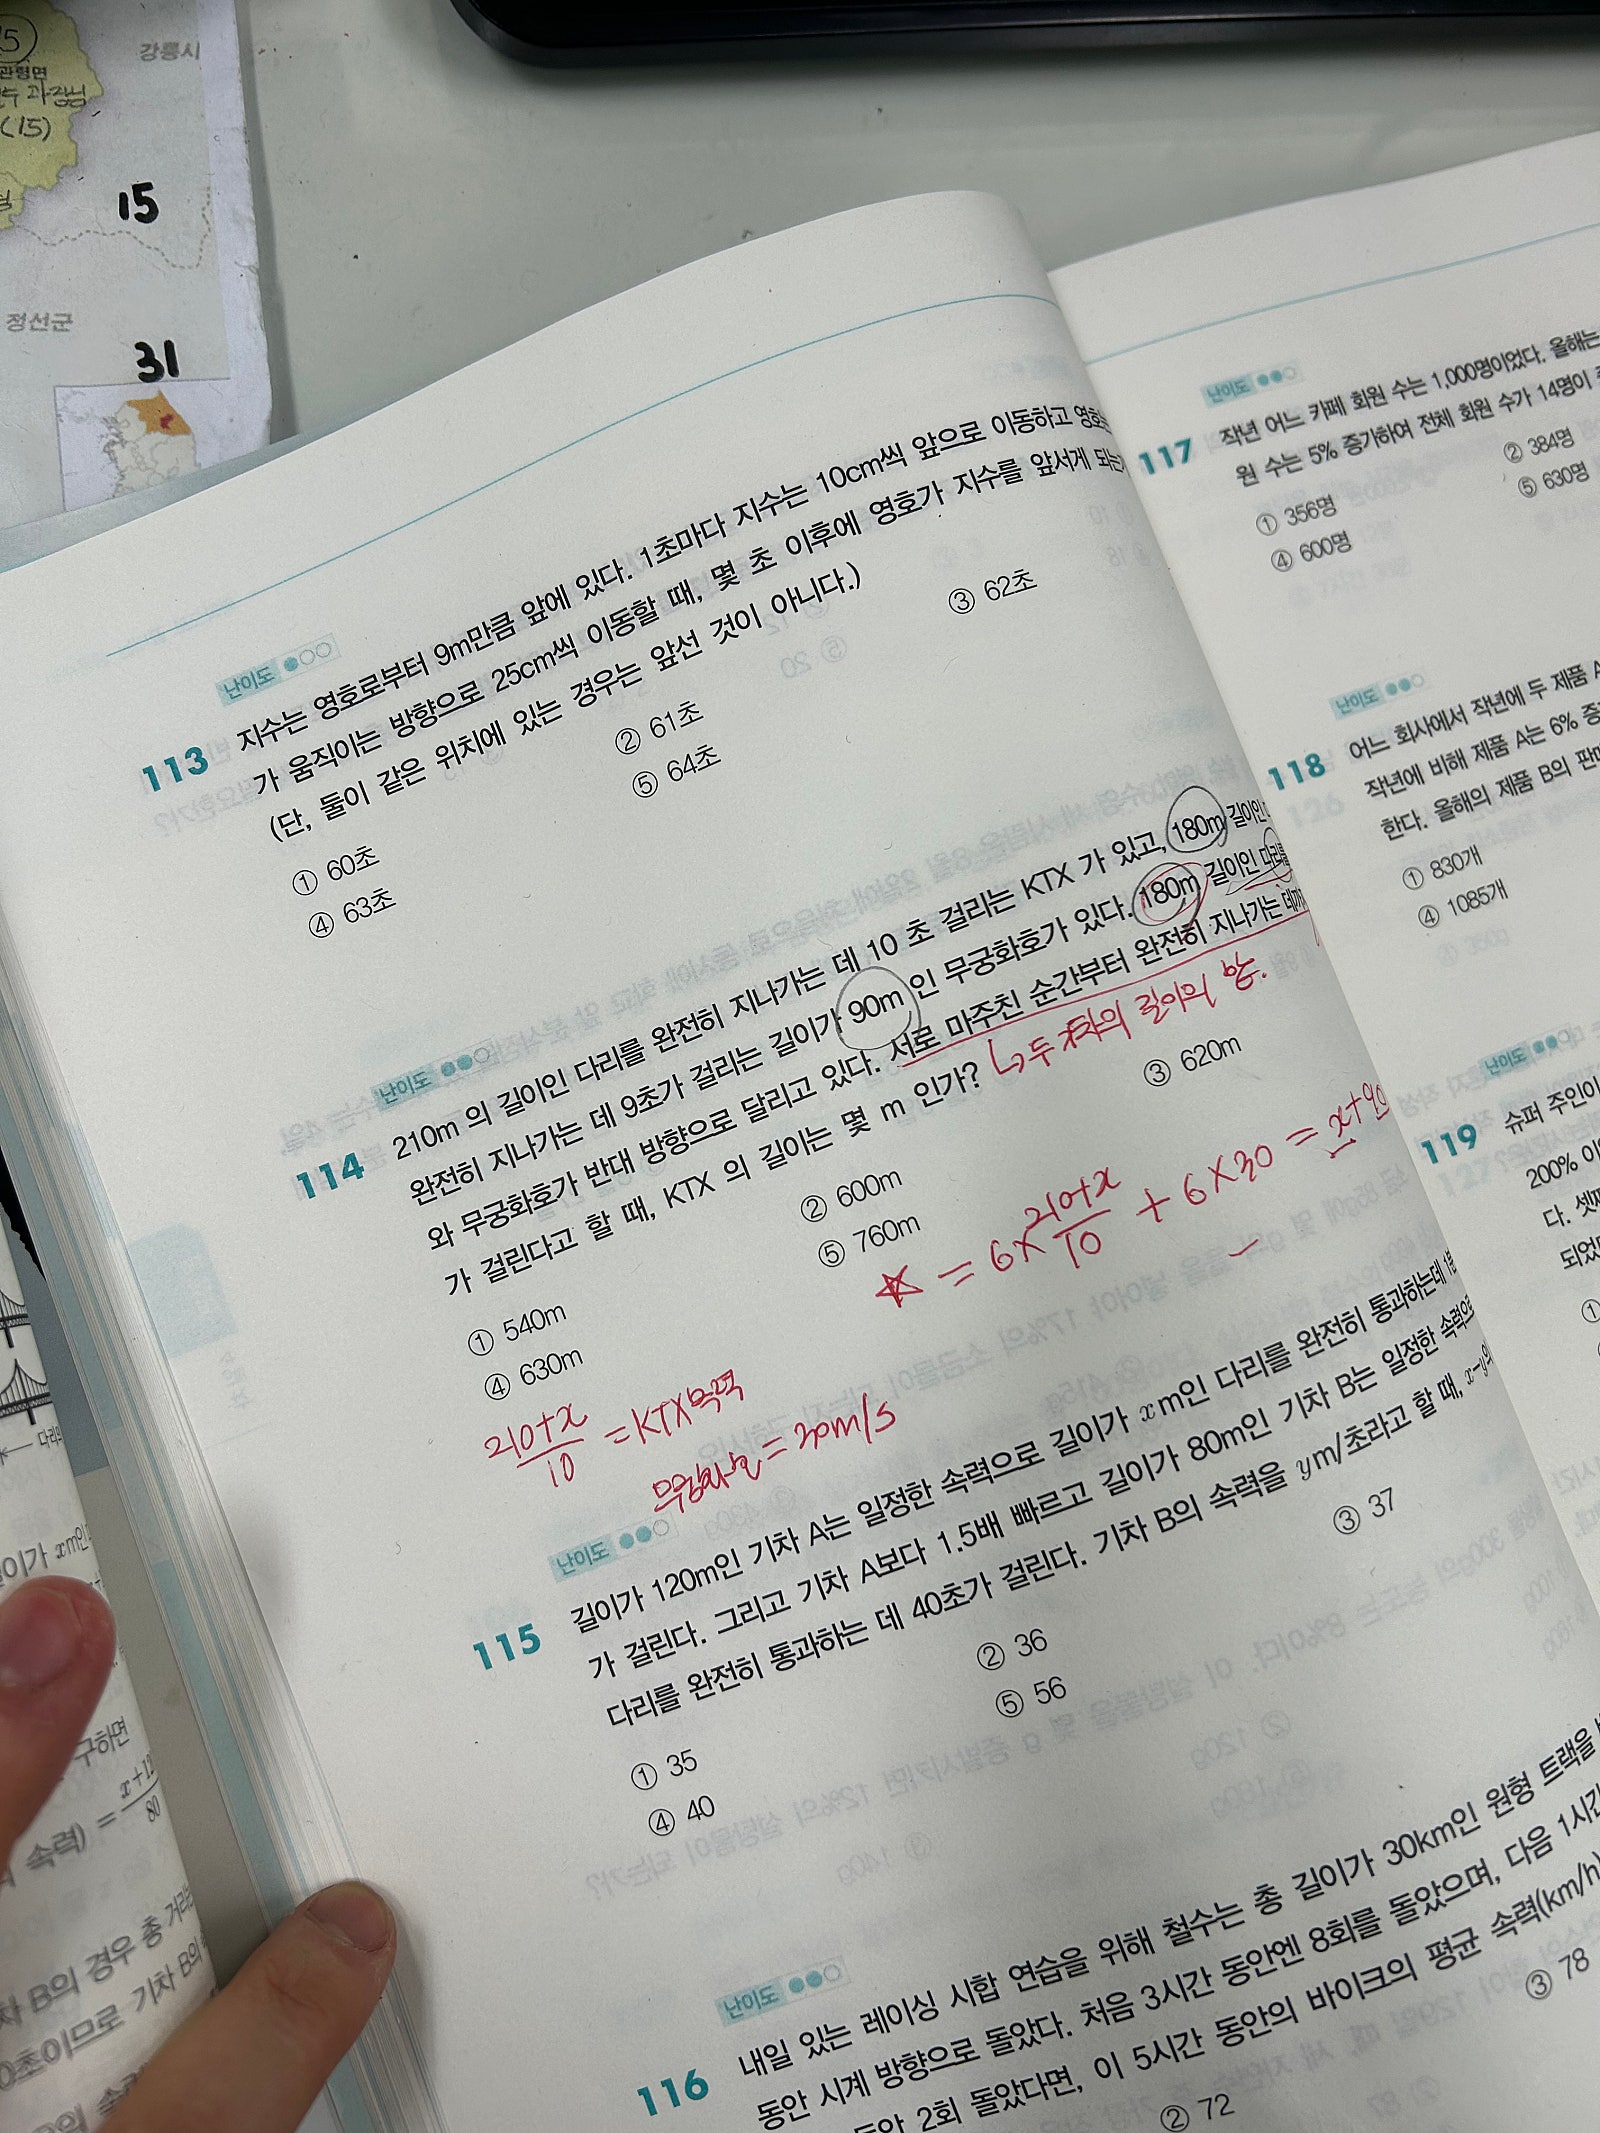 강릉시
15
정선군
31
난이도
113 지수는 영호로부터 9m만큼 앞에 있다. 1초마다 지수는 10cm씩 앞으로 이동하고 영호
가 움직이는 방향으로 25cm씩 이동할 때, 몇 초 이후에 영호가 지수를 앞서게 되는
(단, 둘이 같은 위치에 있는 경우는 앞선 것이 아니다.)
① 60초 ② 61초 ③ 62초
④ 63초 ⑤ 64초
난이도
114 210m 의 길이인 다리를 완전히 지나가는 데 10 초 걸리는 KTX 가 있고, 180m 길이인
완전히 지나가는 데 9초가 걸리는 길이가 90m 인 무궁화호가 있다. 180m 길이인 다리를
와 무궁화호가 반대 방향으로 달리고 있다. 서로 마주친 순간부터 완전히 지나가는 데까
가 걸린다고 할 때, KTX 의 길이는 몇 m 인가?
↳ 두 차의 길이의 합.
① 540m ② 600m ③ 620m
④ 630m ⑤ 760m
☆ = 6× 210+x/10 + 6×30 = x+90
210+x/10 = KTX속력
무궁화호 = 30m/s
난이도
115 길이가 120m인 기차 A는 일정한 속력으로 길이가 xm인 다리를 완전히 통과하는데 1분
가 걸린다. 그리고 기차 A보다 1.5배 빠르고 길이가 80m인 기차 B는 일정한 속력으로
다리를 완전히 통과하는 데 40초가 걸린다. 기차 B의 속력을 ym/초라고 할 때, x-y의
① 35 ② 36 ③ 37
④ 40 ⑤ 56
난이도
116 내일 있는 레이싱 시합 연습을 위해 철수는 총 길이가 30km인 원형 트랙을
동안 시계 방향으로 돌았다. 처음 3시간 동안엔 8회를 돌았으며, 다음 1시간
동안 2회 돌았다면, 이 5시간 동안의 바이크의 평균 속력(km/h)
② 72 ③ 78
난이도
117 작년 어느 카페 회원 수는 1,000명이었다. 올해는
원 수는 5% 증가하여 전체 회원 수가 14명이
① 356명 ② 384명
④ 600명 ⑤ 630명
난이도
118 어느 회사에서 작년에 두 제품 A
작년에 비해 제품 A는 6% 증
한다. 올해의 제품 B의 판매
① 830개
④ 1085개
난이도
119 슈퍼 주인이
200% 이
다. 셋째
되었
구하면
속력) = x+12/80
B의 경우 총 거리
0초이므로 기차 B의